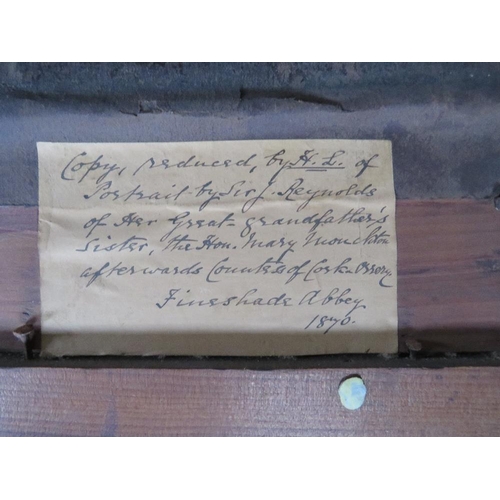 Copy, reduced, by H. L. of
Portrait by Sir J. Reynolds
of Her Great-grandfather's
Sister, the Hon. Mary Monckton
afterwards Countess of Cork & Orrery
Fineshade Abbey
1870.